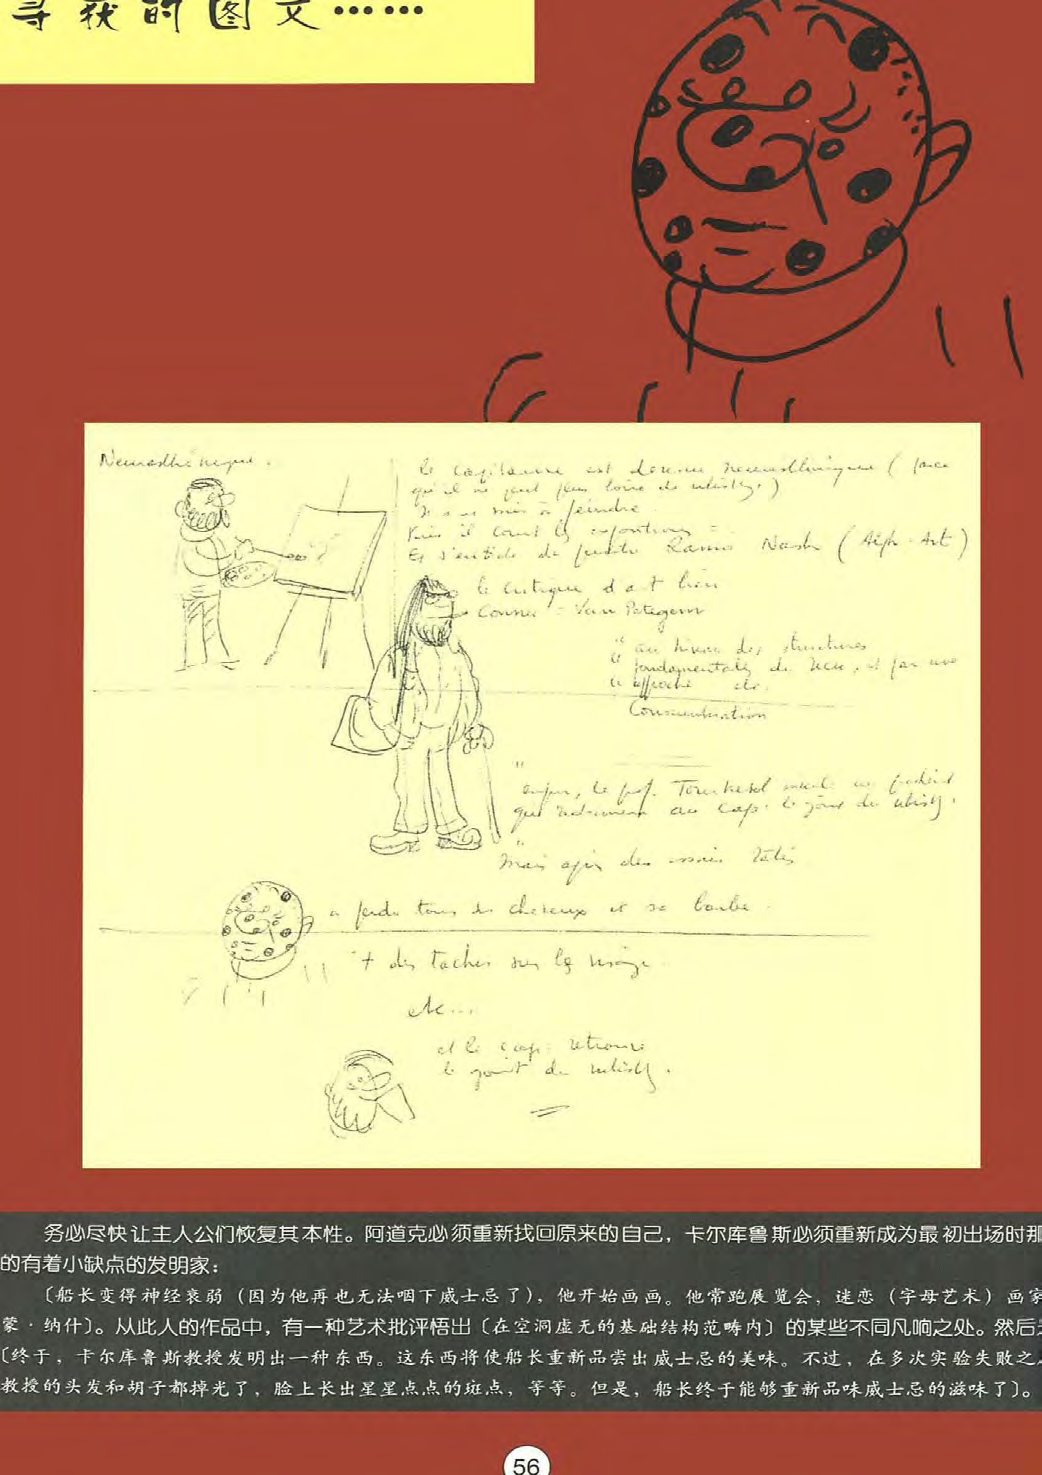 寻获的图文……
le capitaine est devenu neurasthénique (parce
qu'il ne peut plus boire de whisky.)
Il se met à peindre.
Puis il court les expositions =
Et s'entiche du peintre Ramo Nash (Alph-Art)
le critique d'art bien
connu = Van Pategem
" au niveau des structures
" fondamentales du
Concentration
" enfin, le prof. Tournesol
au cap. le goût du whisky.
" Mais après des essais ratés
a perdu tous ses cheveux et sa barbe.
+ des taches sur le visage.
etc...
et le cap. retrouve
le goût du whisky.
务必尽快让主人公们恢复其本性。阿道克必须重新找回原来的自己，卡尔库鲁斯必须重新成为最初出场时那
的有着小缺点的发明家：
〔船长变得神经衰弱（因为他再也无法咽下威士忌了），他开始画画。他常跑展览会，迷恋（字母艺术）画家
蒙·纳什〕。从此人的作品中，有一种艺术批评悟出〔在空洞虚无的基础结构范畴内〕的某些不同凡响之处。然后
〔终于，卡尔库鲁斯教授发明出一种东西。这东西将使船长重新品尝出威士忌的美味。不过，在多次实验失败之
教授的头发和胡子都掉光了，脸上长出星星点点的斑点，等等。但是，船长终于能够重新品味威士忌的滋味了〕。
56